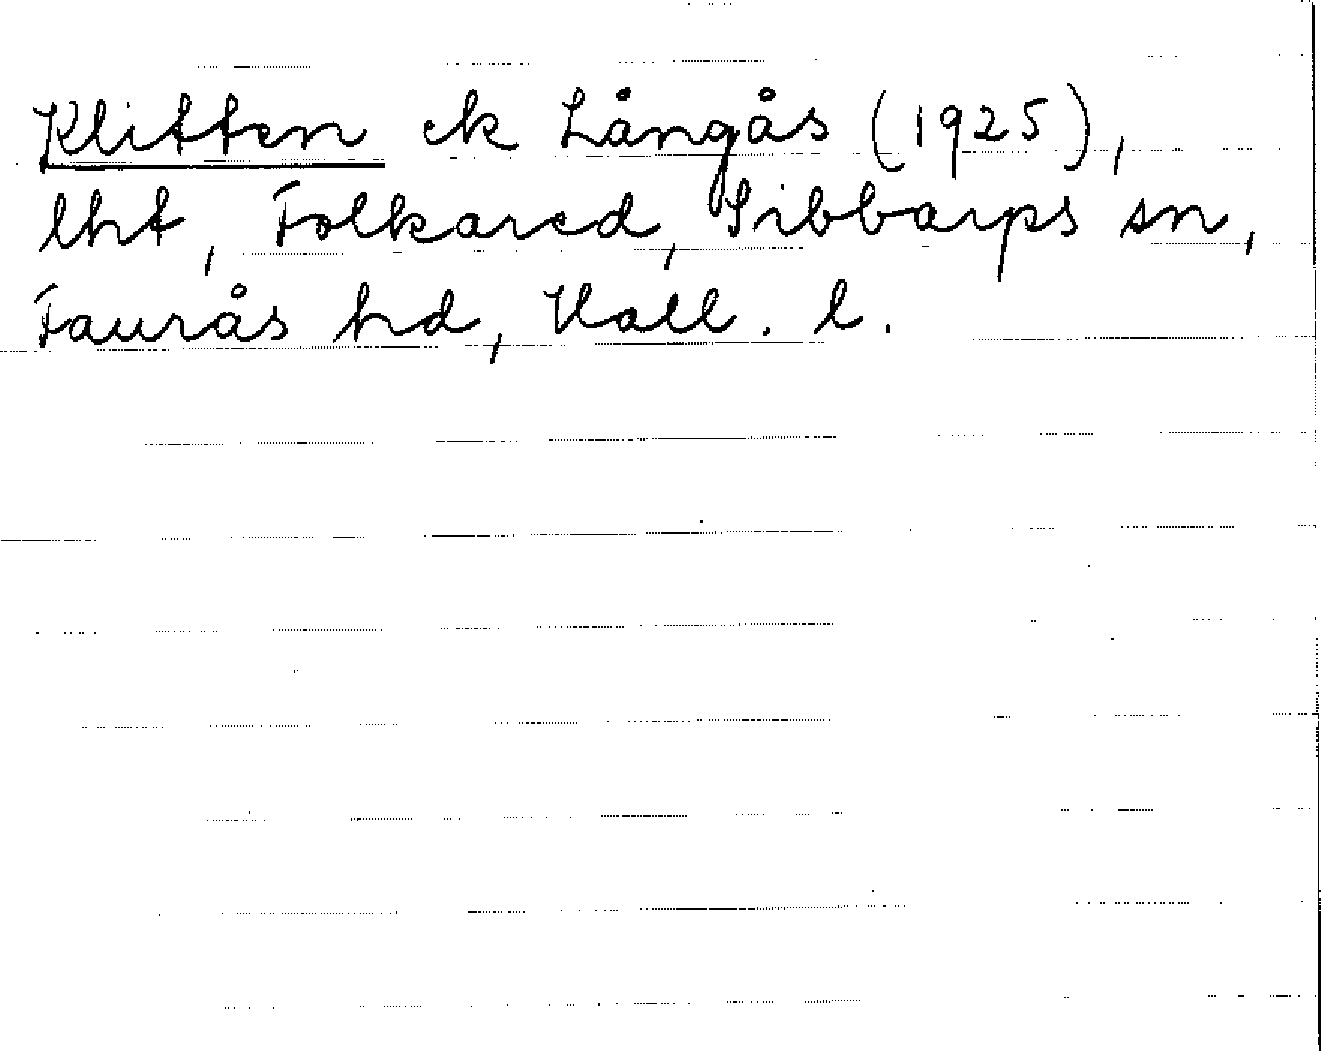 Klitten el Långås (1925),
lht, Folkared, Sibbarps sn,
Faurås hd, Hall. l.